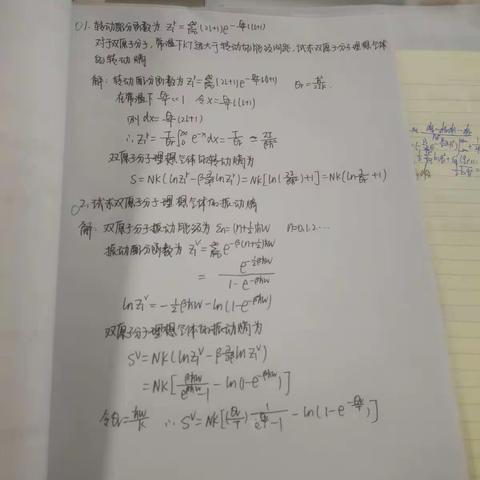 01. 转动配分函数为 Z₁ʳ = Σ(2l+1)e^(-θr/T l(l+1))
对于双原子分子, 常温下KT远大于转动的能级间距. 试求双原子分子理想气体
的转动熵
解: 转动配分函数为 Z₁ʳ = Σ(2l+1)e^(-θr/T l(l+1))
在常温下 θr/T << 1 令 x = θr/T l(l+1)
则 dx = θr/T (2l+1)
∴ Z₁ʳ = T/θr ∫₀^∞ e^(-x) dx = T/θr = 2I/βħ²
双原子分子理想气体的转动熵为
S = NK(lnZ₁ʳ - β ∂/∂β lnZ₁ʳ) = NK[ln(2I/βħ²)+1] = NK(ln T/θr +1)
02. 试求双原子分子理想气体的振动熵
解: 双原子分子振动能级为 εn = (n+½)ħω n=0,1,2...
振动配分函数为 Z₁ᵛ = Σ e^(-β(n+½)ħω)
= e^(-½βħω) / (1 - e^(-βħω))
lnZ₁ᵛ = -½βħω - ln(1-e^(-βħω))
双原子分子理想气体的振动熵为
Sᵛ = NK(lnZ₁ᵛ - β ∂/∂β lnZ₁ᵛ)
= NK[βħω/(e^(βħω)-1) - ln(1-e^(-βħω))]
令θv = ħω/K ∴ Sᵛ = NK[(θv/T) 1/(e^(θv/T)-1) - ln(1-e^(-θv/T))]